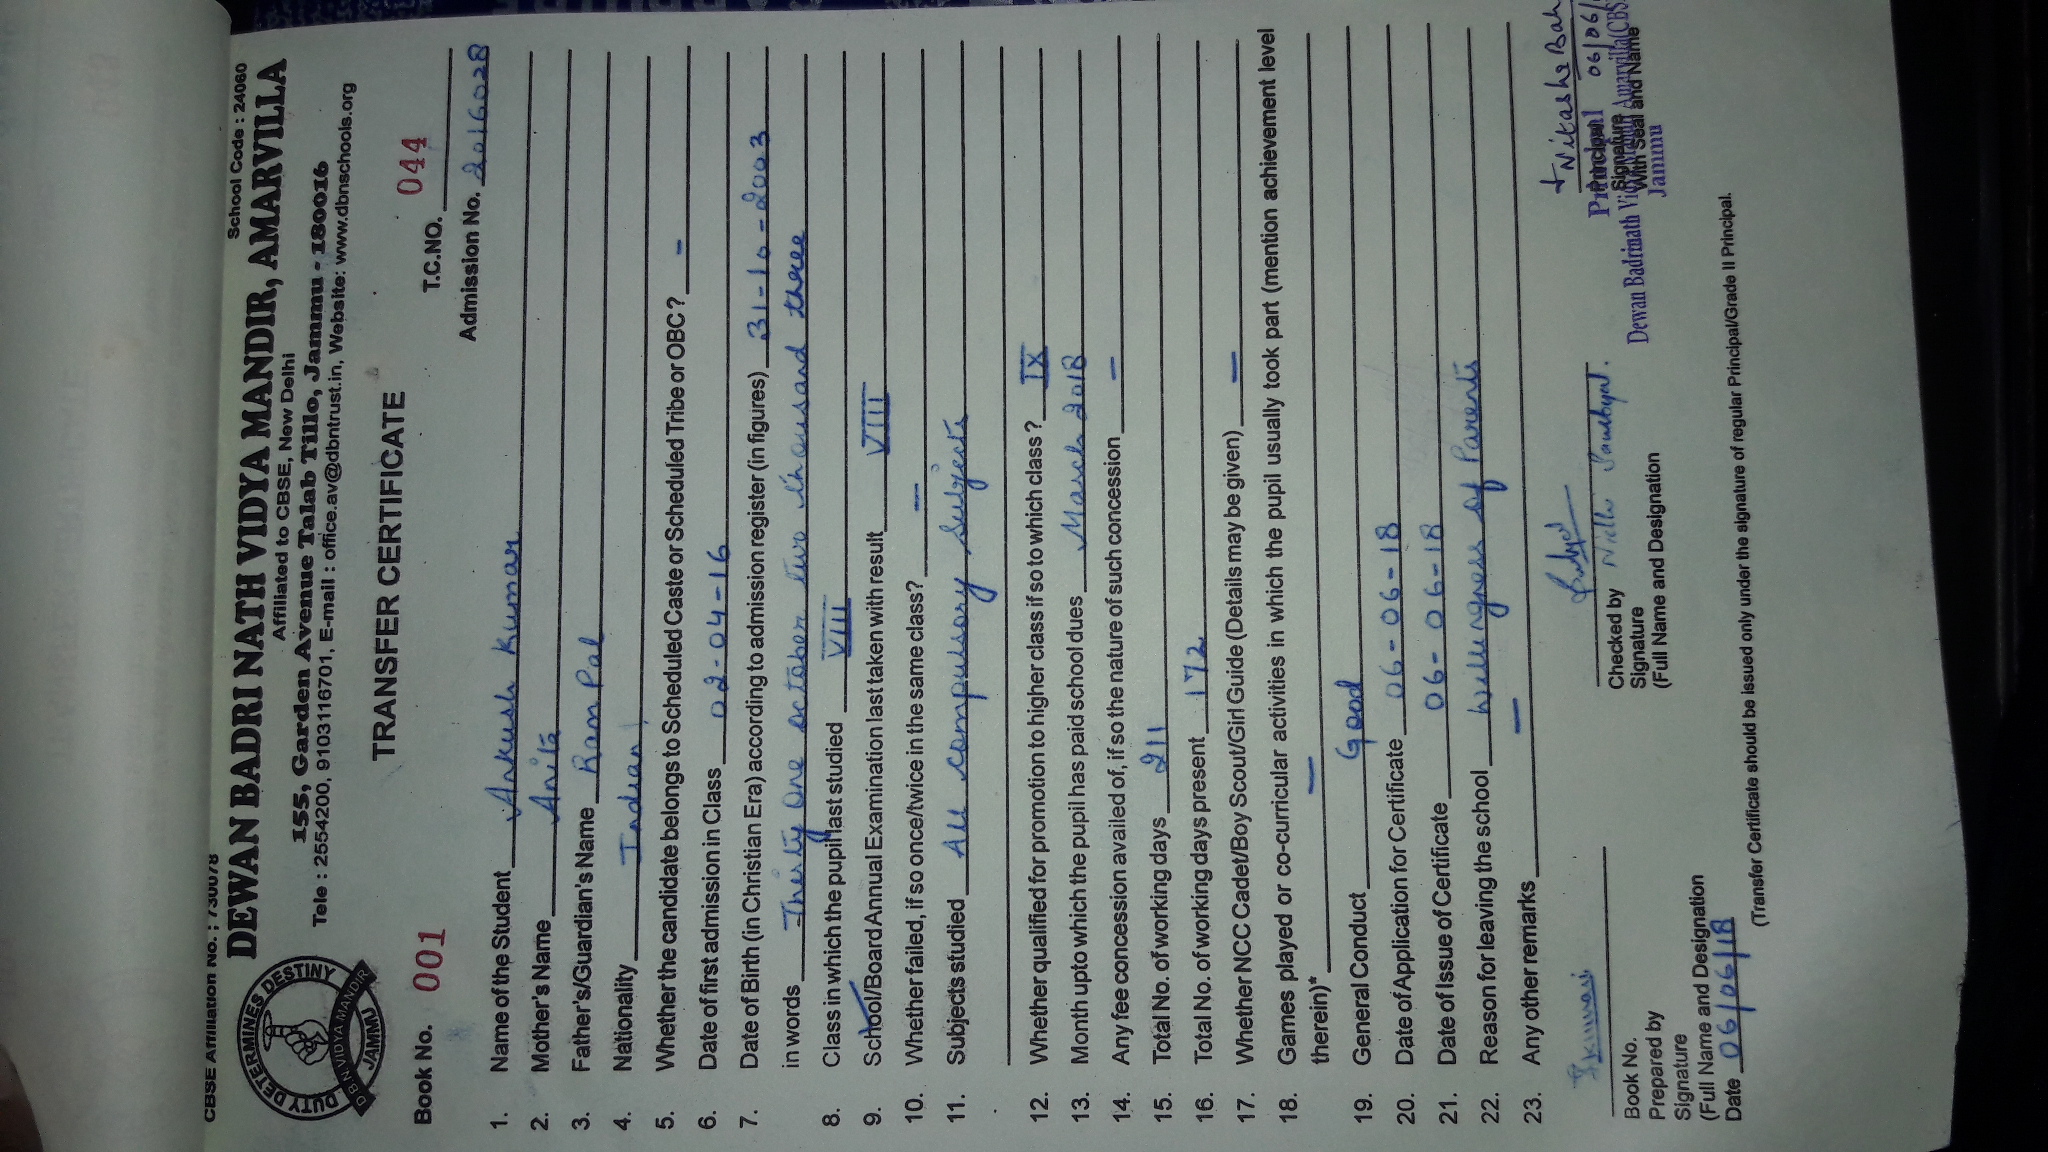 CBSE Affiliation No. : 730078 School Code : 24060
DEWAN BADRI NATH VIDYA MANDIR, AMARVILLA
Affiliated to CBSE, New Delhi
155, Garden Avenue Talab Tillo, Jammu - 180016
Tele : 2554200, 9103116701, E-mail : office.av@dbntrust.in, Website: www.dbnschools.org
DUTY DETERMINES DESTINY
D B N VIDYA MANDIR
JAMMU
TRANSFER CERTIFICATE
Book No. 001 T.C.NO. 044
Admission No. 20166028
1. Name of the Student Ankush Kumar
2. Mother's Name Anita
3. Father's/Guardian's Name Ram Pal
4. Nationality Indian
5. Whether the candidate belongs to Scheduled Caste or Scheduled Tribe or OBC? -
6. Date of first admission in Class 02-04-16
7. Date of Birth (in Christian Era) according to admission register (in figures) 31-10-2003
in words Thirty One october two thousand three
8. Class in which the pupil last studied VIII
9. School/Board Annual Examination last taken with result VIII
10. Whether failed, if so once/twice in the same class? -
11. Subjects studied All compulsory Subjects
12. Whether qualified for promotion to higher class if so to which class? IX
13. Month upto which the pupil has paid school dues March 2018
14. Any fee concession availed of, if so the nature of such concession -
15. Total No. of working days 211
16. Total No. of working days present 172
17. Whether NCC Cadet/Boy Scout/Girl Guide (Details may be given) -
18. Games played or co-curricular activities in which the pupil usually took part (mention achievement level
therein)* -
19. General Conduct Good
20. Date of Application for Certificate 06-06-18
21. Date of Issue of Certificate 06-06-18
22. Reason for leaving the school Willingness of Parents
23. Any other remarks -
Book No.
Prepared by
Signature
(Full Name and Designation
Date 06/06/18
Checked by Nidhi
Signature
(Full Name and Designation
06/06/
Principal
Signature
With Seal and Name
Principal
Dewan Badrinath Amarvilla(CBS
Jammu
(Transfer Certificate should be issued only under the signature of regular Principal/Grade II Principal.